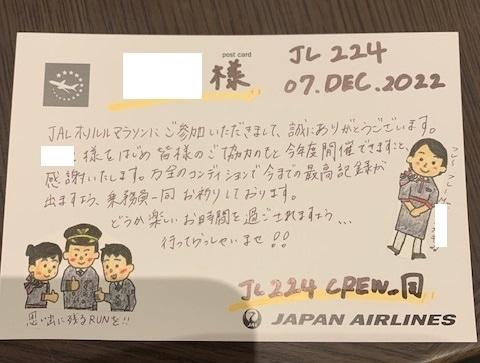 post card
様
JL 224
07.DEC.2022
JALホノルルマラソンにご参加いただきまして、誠にありがとうございます。
様をはじめ皆様のご協力のもと今年度開催できますこと、
感謝いたします。万全のコンディションで今までの最高記録が
出ますよう、乗務員一同お祈りしております。
どうか楽しいお時間を過ごされますよう...
行ってらっしゃいませ!!
フレー フレー
JL224 CREW一同
思い出に残るRUNを!!
JAPAN AIRLINES